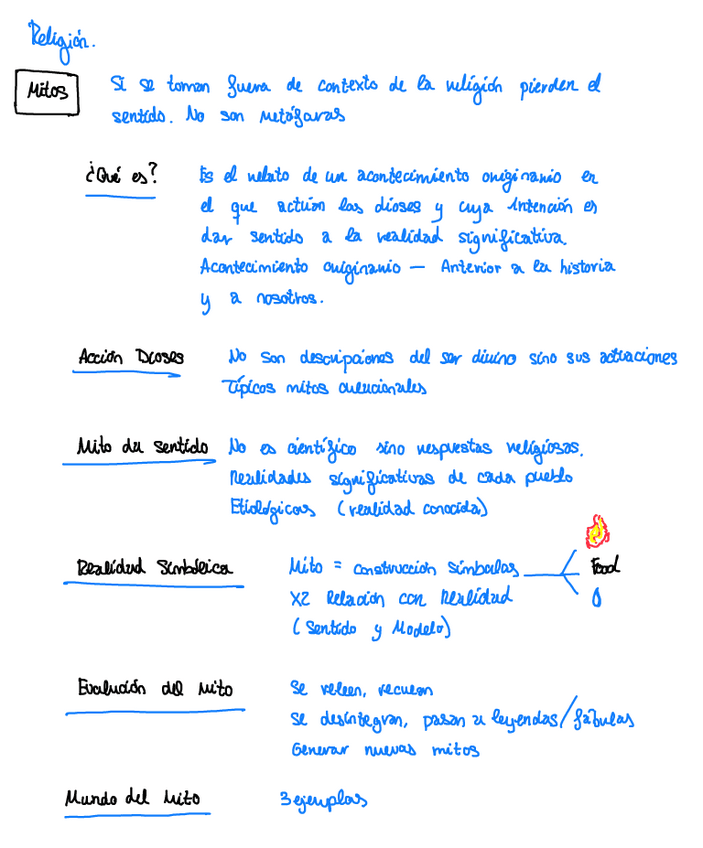 Religión.
Mitos
Si se toman fuera de contexto de la religión pierden el
sentido. No son metáforas
¿Qué es?
Es el relato de un acontecimiento originario en
el que actúan los dioses y cuya intención es
dar sentido a la realidad significativa.
Acontecimiento originario — Anterior a la historia
y a nosotros.
Acción Dioses
No son descripciones del ser divino sino sus actuaciones
Típicos mitos creacionales
Mito da sentido
No es científico sino respuestas religiosas.
Realidades significativas de cada pueblo
Etiológicos (realidad conocida)
Realidad Simbólica
Mito = construcción símbolos
Food
x2 Relación con Realidad
(Sentido y Modelo)
Evolución del mito
Se releen, recrean
Se desintegran, pasan a leyendas/fábulas
Generar nuevos mitos
Mundo del Mito
3 ejemplos